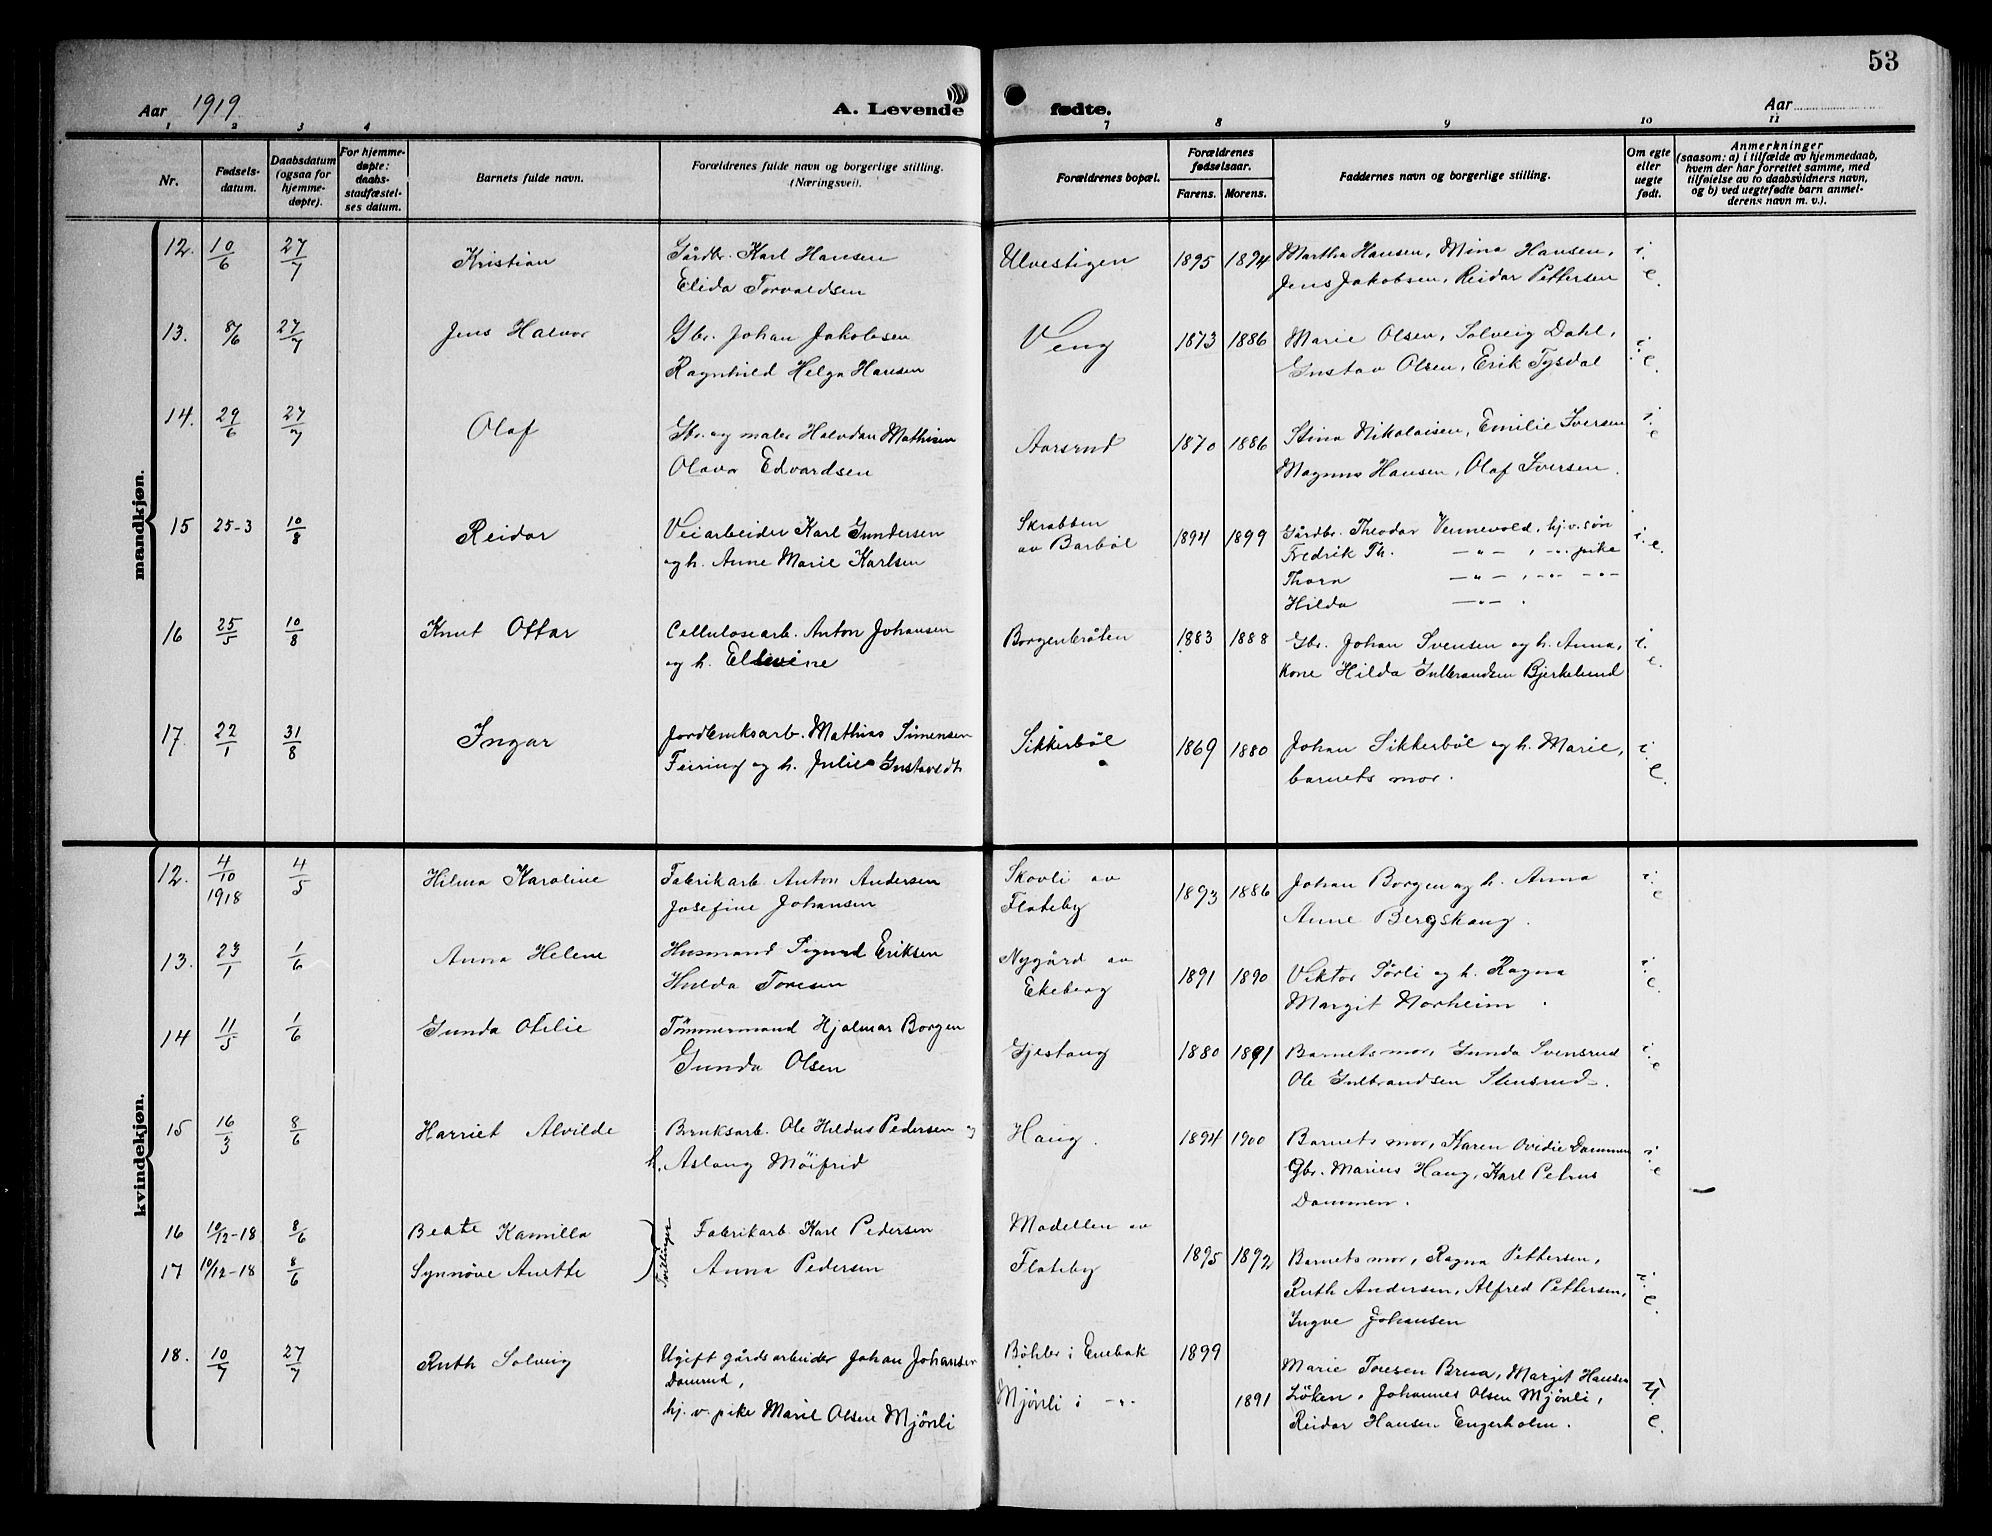 53
Aar 1919
A. Levende fødte.
Aar
1 2 3 4 7 8 9 10 11
Nr.
Fødsels-
datum.
Daabsdatum
(ogsaa for
hjemme-
døpte).
For hjemme-
døpte:
daabs-
stadfæstel-
ses datum.
Barnets fulde navn.
Forældrenes fulde navn og borgerlige stilling.
(Næringsvei).
Forældrenes bopæl.
Forældrenes
fødselsaar.
Farens. Morens.
Faddernes navn og borgerlige stilling.
Om egte
eller
uegte
født.
Anmerkninger
(saasom: a) i tilfælde av hjemmedaab,
hvem der har forrettet samme, med
tilføielse av to daabsvidners navn,
og b) ved uegtefødte barn anmel-
derens navn m. v.).
mandkjøn.
12. 10/6 27/7 Kristian Gårdbr. Karl Hansen Ulvestigen 1895 1894 Martha Hansen, Mina Hansen, i.
Elida Torvaldsen Jens Jakobsen, Reidar Pettersen e.
13. 8/6 27/7 Jens Halvor Gbr. Johan Jakobsen Veng 1873 1886 Marie Olsen, Solveig Dahl, i.
Ragnhild Helga Hansen Gustav Olsen, Erik Tysdal e.
14. 29/6 27/7 Olaf Gbr. og maler Halvdan Mathisen Aarsrud 1870 1886 Stina Nikolaisen, Emilie Iversen i.
Olava Edvardsen Magnus Hansen, Olaf Iversen. e
15 25-3 10/8 Reidar Veiarbeider Karl Gundersen Skrabben 1894 1899 Gårdbr. Theodor Vennevold, hj.v. søn i. e.
og h. Anne Marie Karlsen av Barbøl Fredrik Th. — " — , -"- pike
Thora — " — , -"- -"-
Hilda — " — .
16 25/5 10/8 Knut Ottar Cellulosearb. Anton Johansen Borgenbråten 1883 1888 Gbr. Johan Svensen og h. Anna, i.
og h. Ellevine Kone Hilda Gulbrandsen Bjerkelund e.
17. 22/1 31/8 Ingar Jordbruksarb. Mathias Simensen Sikkerbøl 1869 1880 Johan Sikkerbøl og h. Marie, i.
Feiring og h. Julie Gustavsdt. barnets mor. e.
kvindekjøn.
12. 4/10 4/5 Hilma Karoline Fabrikarb. Anton Andersen Skovli av 1893 1886 Johan Borgen og h. Anna i.
1918 Josefine Johansen Flateby Anne Bergskaug. e
13. 23/1 1/6 Anna Helene Husmand Sigurd Eriksen Nygård av 1891 1890 Viktor Sørli og h. Ragna i.
Hulda Toresen Ekeberg Margit Norheim. e.
14 11/5 1/6 Gunda Otilie Tømmermand Hjalmar Borgen Gjestang 1880 1891 Barnets mor, Gunda Svensrud i.
Gunda Olsen Ole Gulbrandsen Stensrud. e
15 16/3 8/6 Harriet Alvilde Bruksarb. Ole Hildus Pedersen og Haug. 1894 1900 Barnets mor, Karen Ovidie Dammen i.
h. Aslaug Møifrid Gbr. Marius Haug, Karl Petrus e
Dammen.
16 10/12-18 8/6 Beate Kamilla Tvillinger Fabrikarb. Karl Pedersen Modellen av
17 10/12-18 8/6 Synnøve Anette Anna Pedersen Flateby 1895 1892 Barnets mor, Ragna Pettersen,
Ruth Andersen, Alfred Pettersen, i.
Ingve Johansen e.
18. 10/7 27/7 Ruth Solveig Ugift gårdsarbeider Johan Johansen Bøhler i Enebak 1899 Marie Toresen Brua, Margit Hansen
Damrud, Løken, Johannes Olsen Mjønli, u.
hj. v. pike Marie Olsen Mjønli Mjønli i -"- 1891 Reidar Hansen Engerholm. e.